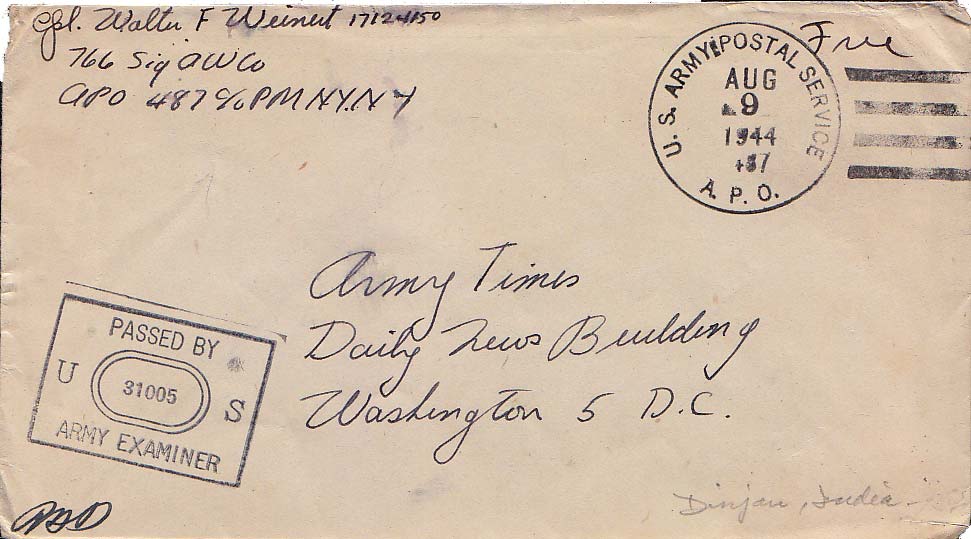 Cpl. Walter F Weinert 17124150
766 Sig AW Co
APO 487 c/o PM N.Y. N Y
Free
U. S. ARMY POSTAL SERVICE
AUG
9
1944
A. P. O.
Army Times
Daily News Building
Washington 5 D.C.
PASSED BY
U 31005 S
ARMY EXAMINER
Dinjan, India